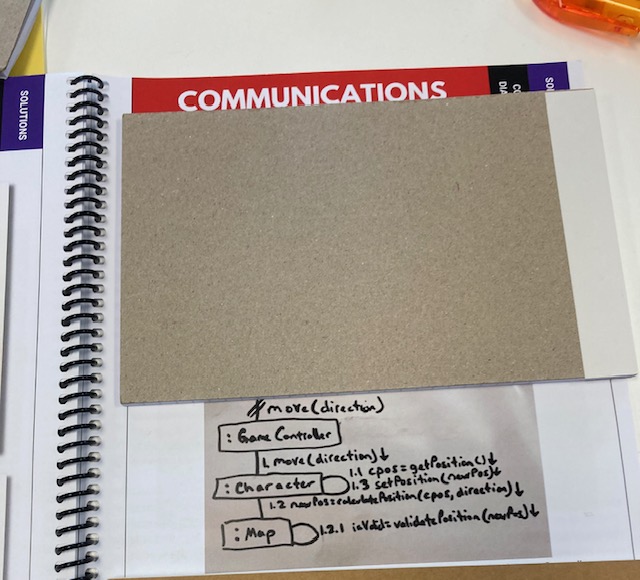 COMMUNICATIONS
SOLUTIONS
CO
DIA
SO
move(direction)
: Game Controller
1. move(direction)↓
1.1 cpos=getPosition()↓
: Character
1.3 setPosition(newPos)↓
1.2 newPos=calculatePosition(cpos, direction)↓
: Map
1.2.1 isValid=validatePosition(newPos)↓